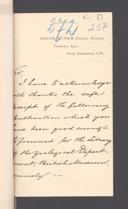 BRITISH MUSEUM (Natural History)
Cromwell Road,
237
Sir,
I have to acknowledge
with thanks the safe
receipt of the following
publication which you
have been good enough
to forward for the Library
of the Zoological Depart-
ment, British Museum,
namely :—